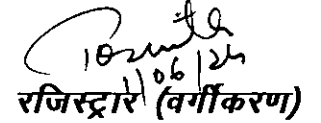 11/06/24
रजिस्ट्रार (वर्गीकरण)